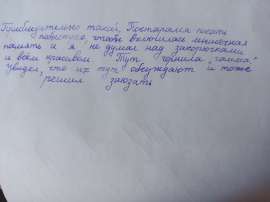 Приблизительно такой, Постарался писать
побыстрее, чтобы включилась мышечная
память и я не думал над закорючками
и всем красивым. Тут чернила "чайка"
увидел, что их тут обсуждают и тоже
решил заюзать